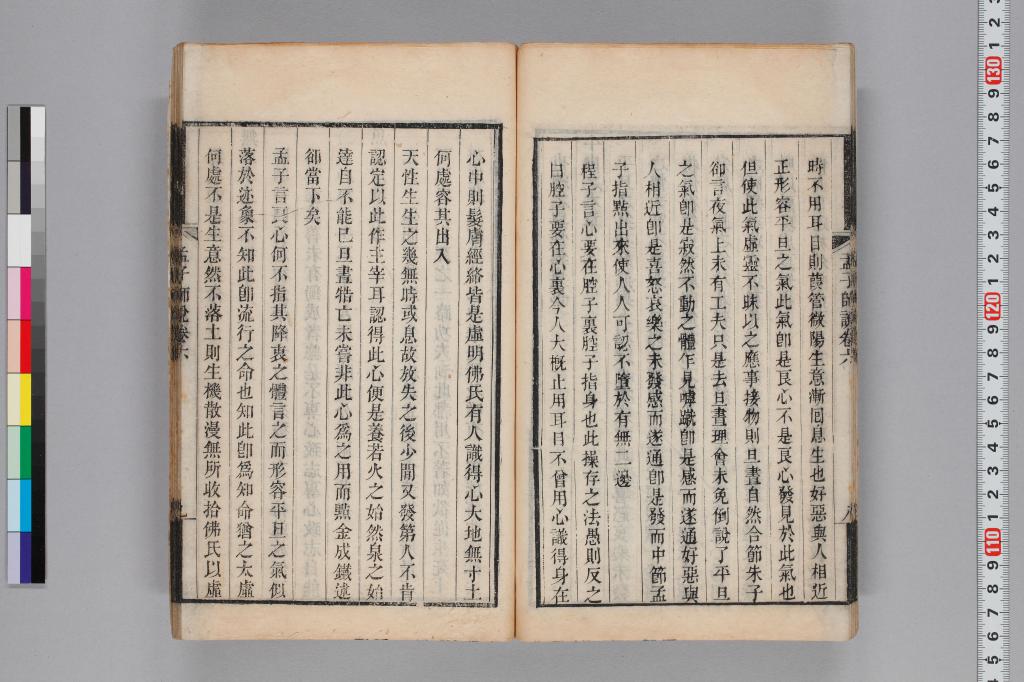 時不用耳目則葭管微陽生意漸囘息生也好惡與人相近
正形容平旦之氣此氣卽是良心不是良心發見於此氣也
但使此氣虛靈不昧以之應事接物則旦晝自然合節朱子
卻言夜氣上未有工夫只是去旦晝理會未免倒說了平旦
之氣卽是寂然不動之體乍見嘑蹴卽是感而遂通好惡與
人相近卽是喜怒哀樂之未發感而遂通卽是發而中節孟
子指點出來使人人可認不墮於有無二邊
程子言心要在腔子裏腔子指身也此操存之法愚則反之
曰腔子要在心裏今人大槪止用耳目不曾用心識得身在
孟子師說卷六
九
心中則髮膚經絡皆是虛明佛氏有人識得心大地無寸土
何處容其出入
天性生生之幾無時或息故放失之後少閒又發第人不肯
認定以此作主宰耳認得此心便是養若火之始然泉之始
達自不能已旦晝牿亡未嘗非此心爲之用而點金成鐵迷
卻當下矣
孟子言良心何不指其降衷之體言之而形容平旦之氣似
落於迹象不知此卽流行之命也知此卽爲知命猶之太虛
何處不是生意然不落土則生機散漫無所收拾佛氏以虛
孟子師說卷六